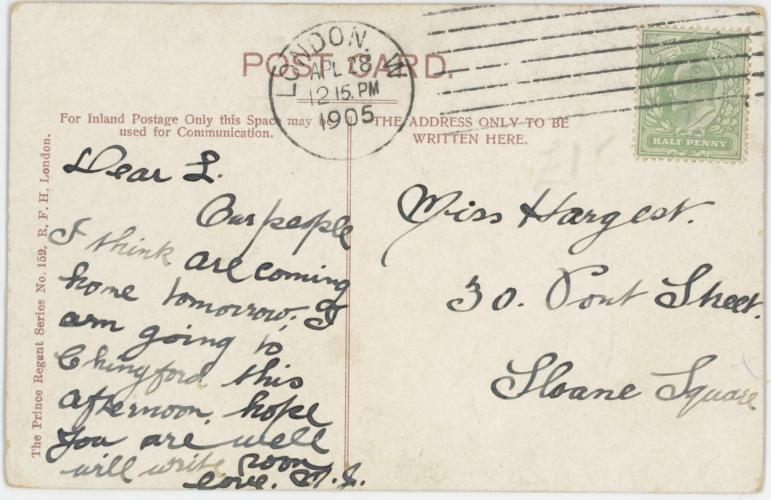 POST CARD.
LONDON. W
APL 28
12 15. PM
1905
HALF PENNY
For Inland Postage Only this Space may be
used for Communication.
THE ADDRESS ONLY TO BE
WRITTEN HERE.
The Prince Regent Series No. 159. R. F. H. London.
Dear L.
Our people
I think are coming
home tomorrow. I
am going to
Chingford this
afternoon, hope
you are well
will write soon
love.
Miss Hargest.
30. Pont Street.
Sloane Square